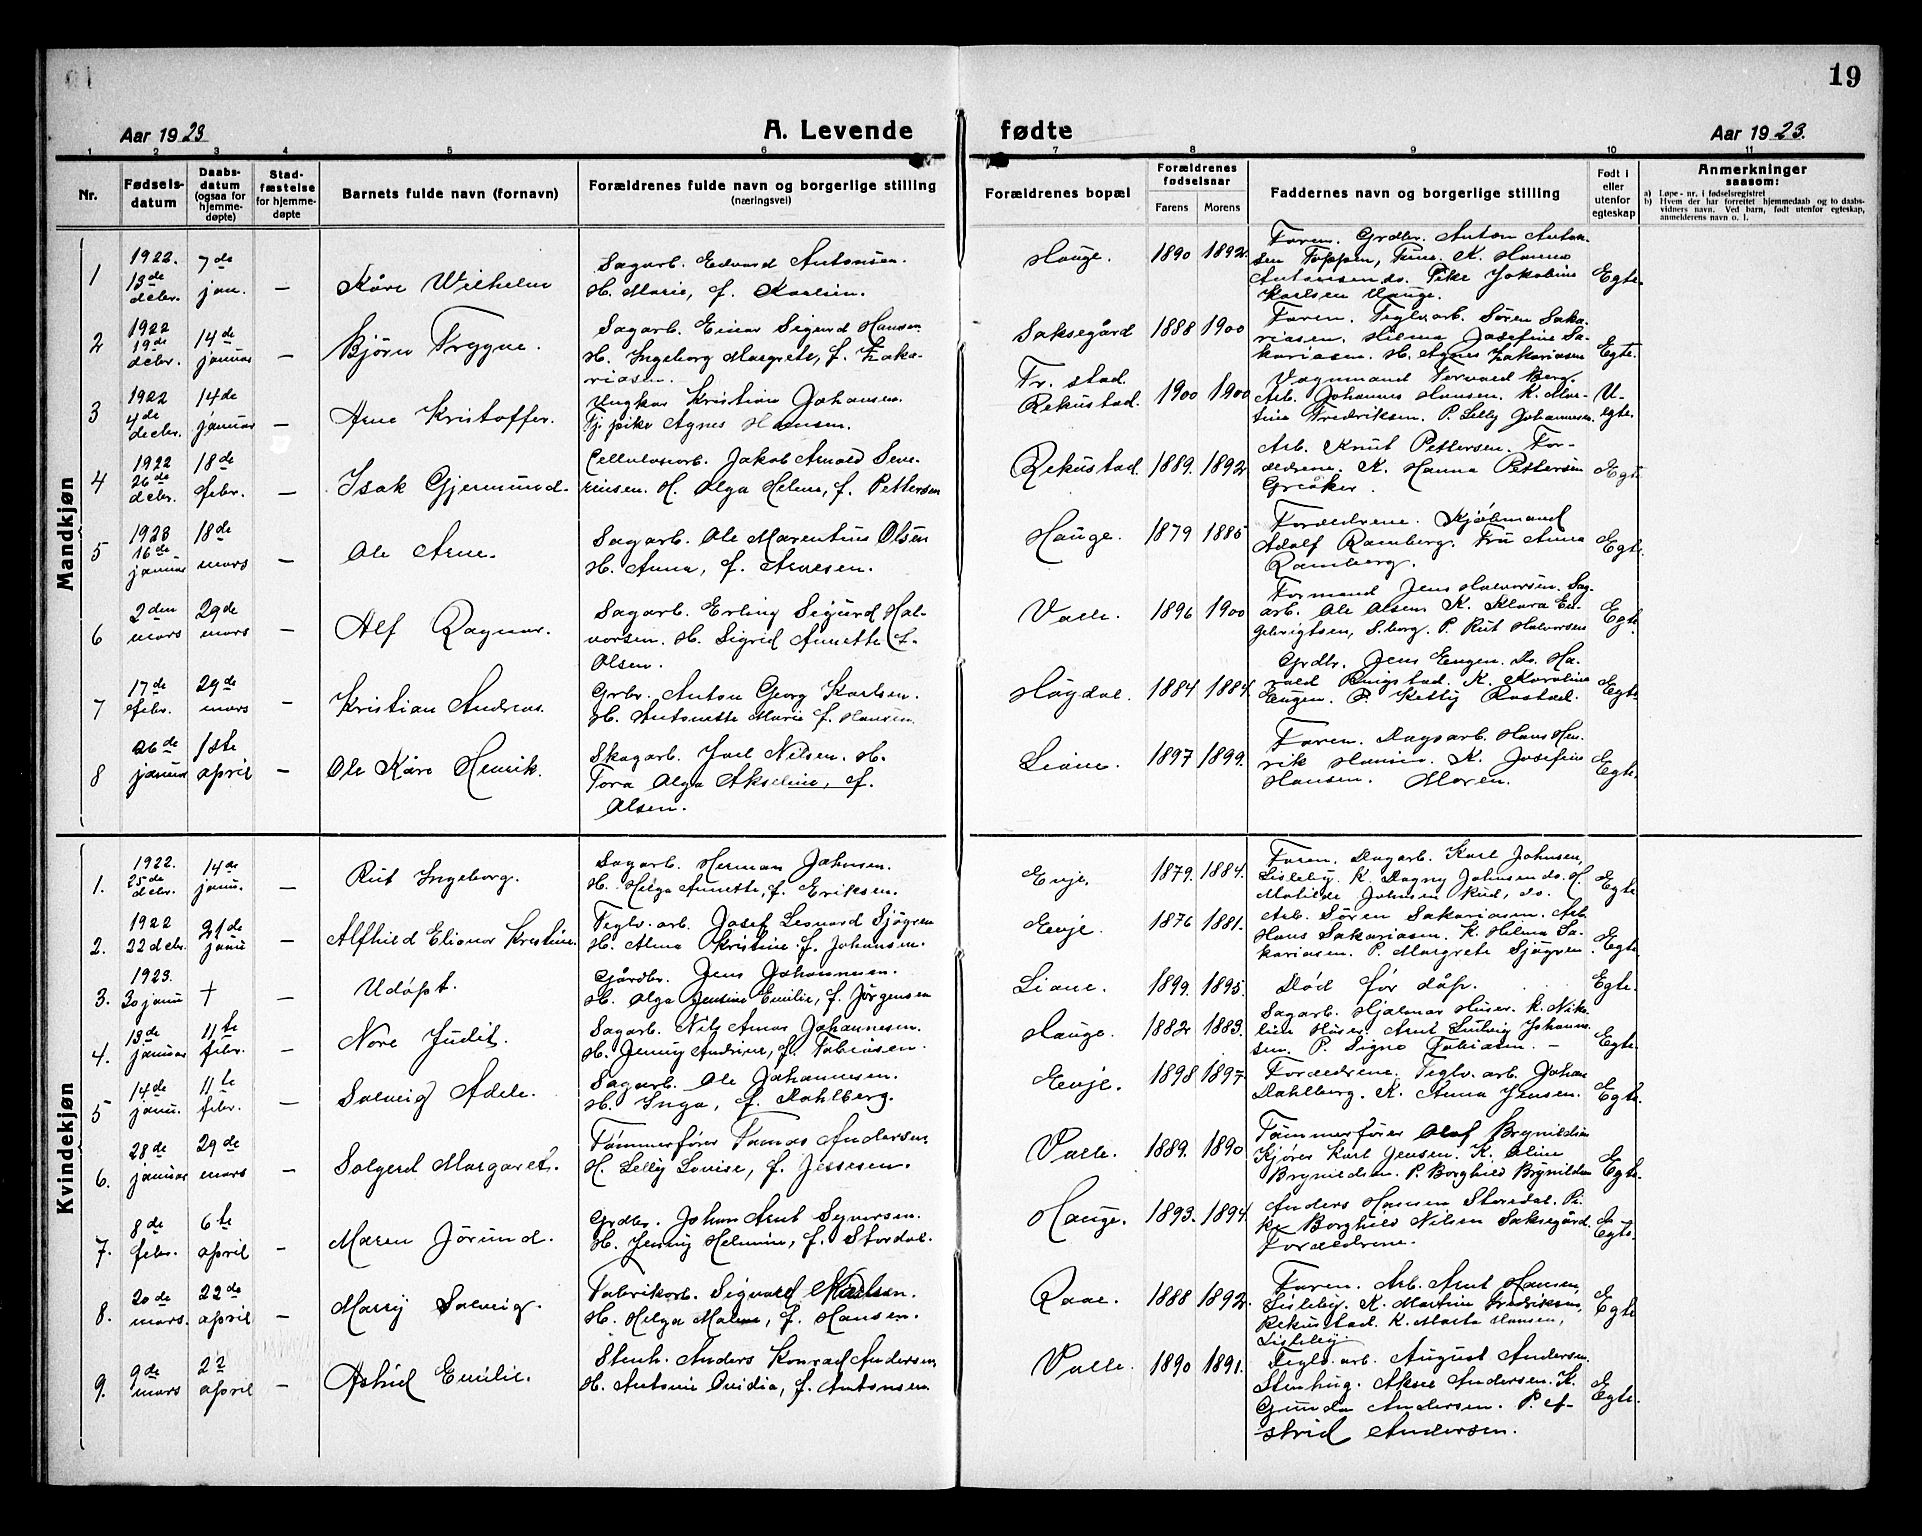 19
Aar 1923
A. Levende
fødte
Aar 1923.
1 2 3 4 5 6 7 8 9 10 11
Nr.
Fødsels-
datum
Daabs-
datum
(ogsaa for
hjemme-
døpte)
Stad-
fæstelse
for hjemme-
døpte
Barnets fulde navn (fornavn)
Forældrenes fulde navn og borgerlige stilling
(næringsvei)
Forældrenes bopæl
Forældrenes
fødselsaar
Farens
Morens
Faddernes navn og borgerlige stilling
Født i
eller
utenfor
egteskap
Anmerkninger
saasom:
a) Løpe-nr. i fødselsregistret
b) Hvem der har forrettet hjemmedaab og to daabs-
vidners navn. Ved barn, født utenfor egteskap,
anmelderens navn o. l.
Mandkjøn
1
1922.
13de
decbr.
7de
jan.
—
Kåre Wilhelm
Sagarb. Edvard Antonsen.
H. Marie, f. Karlsen.
Hauge.
1890
1892
Faren. Grdbr. Anton Anton-
sen Toppen, Tune. K. Hanna
Antonsen do. Pike Jakobine
Karlsen Hauge.
Egte.
2
1922
19de
decbr.
14de
januar
—
Bjørn Trygve.
Sagarb. Einar Sigurd Hansen
H. Ingeborg Margrete, f. Zaka-
riasen.
Saksegård
1888
1900
Faren. Teglv.arb. Søren Saka-
riasen. Helma Josefine Sa-
kariasen. H. Agnes Zakariasen
Egte.
3
1922
4de
decbr.
14de
januar
—
Arne Kristoffer.
Ungkar Kristian Johansen.
Tj. pike Agnes Hansen.
Fr. stad.
Rekustad.
1900
1900
Vognmand Torvald Berg.
Arb. Johannes Hansen. K. Mar-
tine Fredriksen. P. Lilly Johannesen.
U-
egte.
4
1922
26de
decbr.
18de
febr.
—
Isak Gjermund.
Cellulosearb. Jakob Arnold Seve-
rinsen. H. Olga Helene, f. Pettersen
Rekustad.
1889.
1892
Arb. Knut Pettersen. For-
ældrene. K. Hanna Pettersen
Greåker.
Egte
5
1923
16de
januar
18de
mars
—
Ole Arne.
Sagarb. Ole Marentius Olsen
H. Anna, f. Arnesen.
Hauge.
1879
1885
Forældrene. Kjøbmand
Adolf Ramberg. Fru Anna
Ramberg.
Egte.
6
2den
mars
29de
mars
—
Alf Ragnar.
Sagarb. Erling Sigurd Hal-
vorsen. H. Sigrid Annette f.
Olsen.
Valle.
1896
1900
Formand Jens Halvorsen. Sag-
arb. Ole Olsen K. Klara En-
gebrigtsen, S.borg. P. Rut Halvorsen
Egte.
7
17de
febr.
29de
mars
—
Kristian Andreas.
Grbr. Anton Georg Karlsen.
H. Antonette Marie f. Hansen.
Høgdal.
1884
1884.
Grdbr. Jens Engen. Do. Ha-
rald Ringstad. K. Karoline
Engen. P. Ketty Rostad.
Egte.
8
26de
januar
1ste
april
—
Ole Kåre Henrik.
Skogarb. Joel Nilsen. H.
Tora Olga Akseline, f.
Olsen.
Liane.
1897
1899.
Faren. Dagsarb. Hans Hen-
rik Hansen. K. Josefine
Hansen. Moren.
Egte.
Kvindekjøn
1.
1922.
25de
decbr.
14de
janu.
—
Rut Ingeborg.
Sagarb. Herman Johnsen.
H. Helga Annette, f. Eriksen.
Evje.
1879.
1884.
Faren. Dagarb. Karl Johnsen,
Lisleby. K. Dagny Johnsen do. H.
Matilde Johnsen Rud, do.
Egte
2.
1922
22 decbr.
21de
janu
—
Alfhild Elionor Kristine.
Teglv. arb. Josef Leonard Sjøgren
H. Alma Kristine f. Johansen.
Evje.
1876
1881.
Arb. Søren Sakariasen. Arb.
Hans Sakariasen. K. Hilma Sa-
kariasen. P. Margrete Sjøgren.
Egte.
3.
1923.
30 janu
†
—
Udøpt.
Gårdbr. Jens Johannesen.
H. Olga Jensine Emilie, f. Jørgensen
Liane.
1899.
1895.
Død før dåp.
Egte.
4.
13de
januar
11te
febr.
—
Nore Judit.
Sagarb. Nils Arnas Johannesen.
H. Jenny Andrine, f. Tobiasen.
Hauge.
1882
1883.
Sagarb. Hjalmar Huser. K. Niko-
line Huser. Arnt Ludvig Johanne-
sen. P. Signe Tobiasen. —
Egte.
5
14de
janu.
11te
febr.
—
Solveig Adele.
Sagarb. Ole Johannesen.
H. Inga, f. Dahlberg.
Evje.
1898
1897
Forældrene. Teglv. arb. Johan
Dahlberg. K. Anna Jensen.
Egte.
6.
28de
januar
29de
mars
—
Solgerd Margaret.
Tømmerfører Tomas Andersen,
H. Lelly Lovise, f. Jessesen.
Valle.
1889.
1890
Tømmerfører Olaf Brynildsen
Kjører Karl Jensen. K. Eline
Brynildsen. P. Borghild Brynildsen
Egte.
7.
8de
febr.
6te
april
—
Maren Jørund.
Grdbr. Johan Arnt Syversen.
H. Jenny Helmine, f. Stordal.
Hauge.
1893.
1894.
Anders Hansen Stordal. Pi-
ke Borghild Nilsen Saksegård.
Forældrene.
Egte.
8.
20de
mars.
22de
april
—
Marry Solveig.
Fabrikarb. Sigvald Karlsen.
H. Helga Malene, f. Hansen.
Raae.
1888
1892.
Faren. Arb. Arnt Hansen,
Lisleby. K. Martine Fredriksen,
Rekustad. K. Marta Hansen,
Lisleby.
Egte
9.
9de
mars
22
april
—
Astrid Emilie.
Stenh. Anders Konrad Andersen,
H. Antonie Ovidia, f. Antonsen.
Valle.
1890
1891.
Teglv. arb. August Andersen.
Stenhug. Aksel Andersen. K.
Gunda Andersen. P. A-
strid Andersen.
Egte.